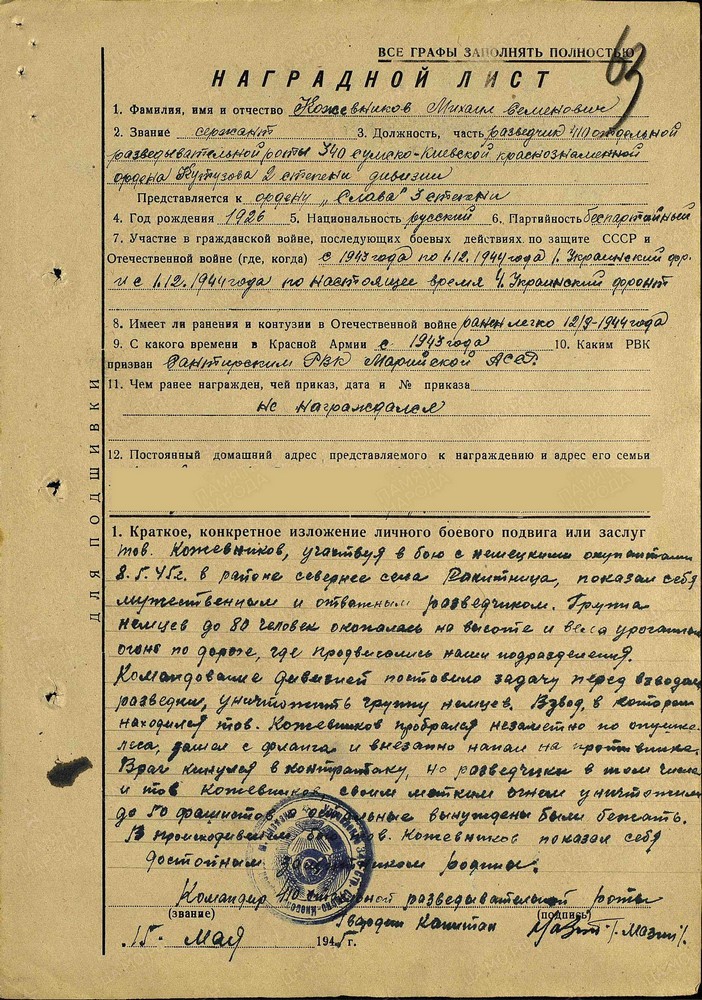 63
ВСЕ ГРАФЫ ЗАПОЛНЯТЬ ПОЛНОСТЬЮ
НАГРАДНОЙ ЛИСТ
1. Фамилия, имя и отчество Кожевников Михаил Семенович
2. Звание сержант 3. Должность, часть разведчик 410 отдельной
разведывательной роты 340 Сумско-Киевской краснознаменной
ордена Кутузова 2 степени дивизии
Представляется к ордену „Слава" 3 степени
4. Год рождения 1926 5. Национальность русский 6. Партийность беспартийный
7. Участие в гражданской войне, последующих боевых действиях по защите СССР и
Отечественной войне (где, когда) с 1943 года по 1.12.1944 года 1. Украинский фр.
и с 1.12.1944 года по настоящее время 4. Украинский фронт
8. Имеет ли ранения и контузии в Отечественной войне ранен легко 1944 года
9. С какого времени в Красной Армии с 1943 года 10. Каким РВК
призван РВК Марийской АССР.
11. Чем ранее награжден, чей приказ, дата и № приказа
не награждался
12. Постоянный домашний адрес представляемого к награждению и адрес его семьи
ДЛЯ ПОДШИВКИ
1. Краткое, конкретное изложение личного боевого подвига или заслуг
тов. Кожевников, участвуя в бою с немецкими окупантами
8.5.45г. в районе севернее села Ракитница, показал себя
мужественным и отважным разведчиком. Группа
немцев до 80 человек окопалась на высоте и вела ураганный
огонь по дороге, где продвигались наши подразделения.
Командование дивизией поставило задачу перед взводом
разведки, уничтожить группу немцев. Взвод, в котором
находился тов. Кожевников пробрался незаметно по опушке
леса, зашел с фланга и внезапно напал на противника.
Враг кинулся в контратаку, но разведчики в том числе
и тов Кожевников своим метким огнем уничтожили
до 50 фашистов, остальные вынуждены были бежать.
В происходившем бою тов. Кожевников показал себя
достойным защитником родины.
Командир 410 отдельной разведывательной роты
(звание) (подпись)
Гвардии Капитан /Мазин/.
„15" мая 1945 г.